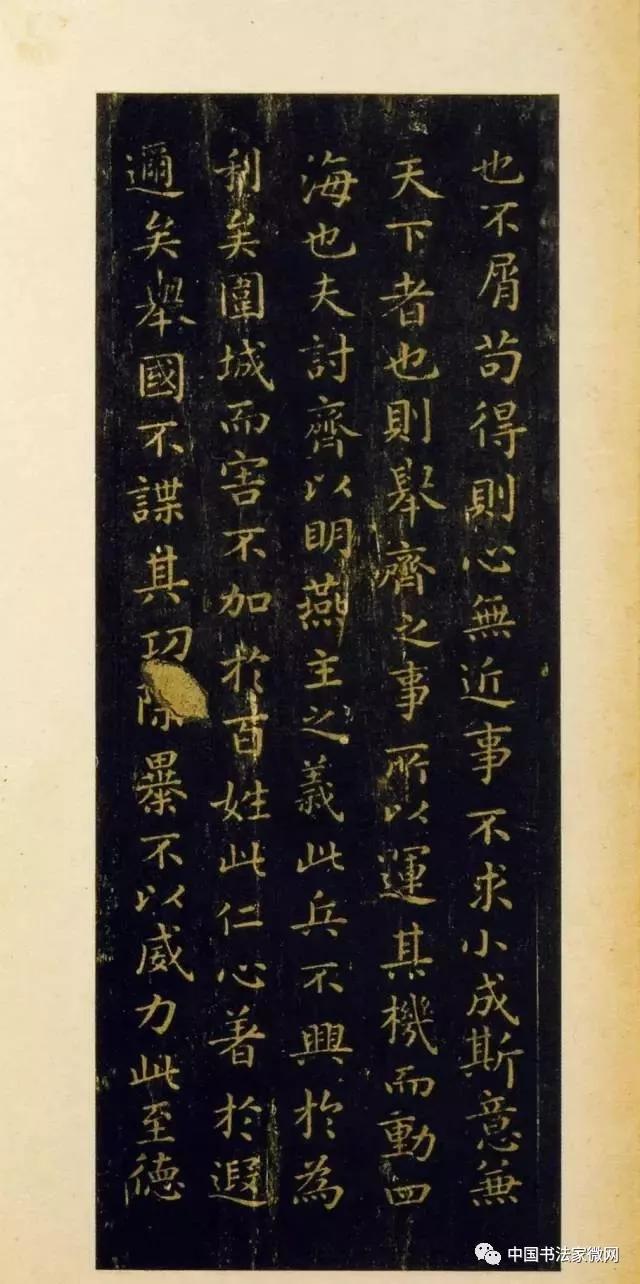 也不屑苟得則心無近事不求小成斯意無
天下者也則舉齊之事所以運其機而動四
海也夫討齊以明燕主之義此兵不興於為
利矣圍城而害不加於百姓此仁心著於遐
邇矣舉國不謀其功除暴不以威力此至德
中国书法家微网